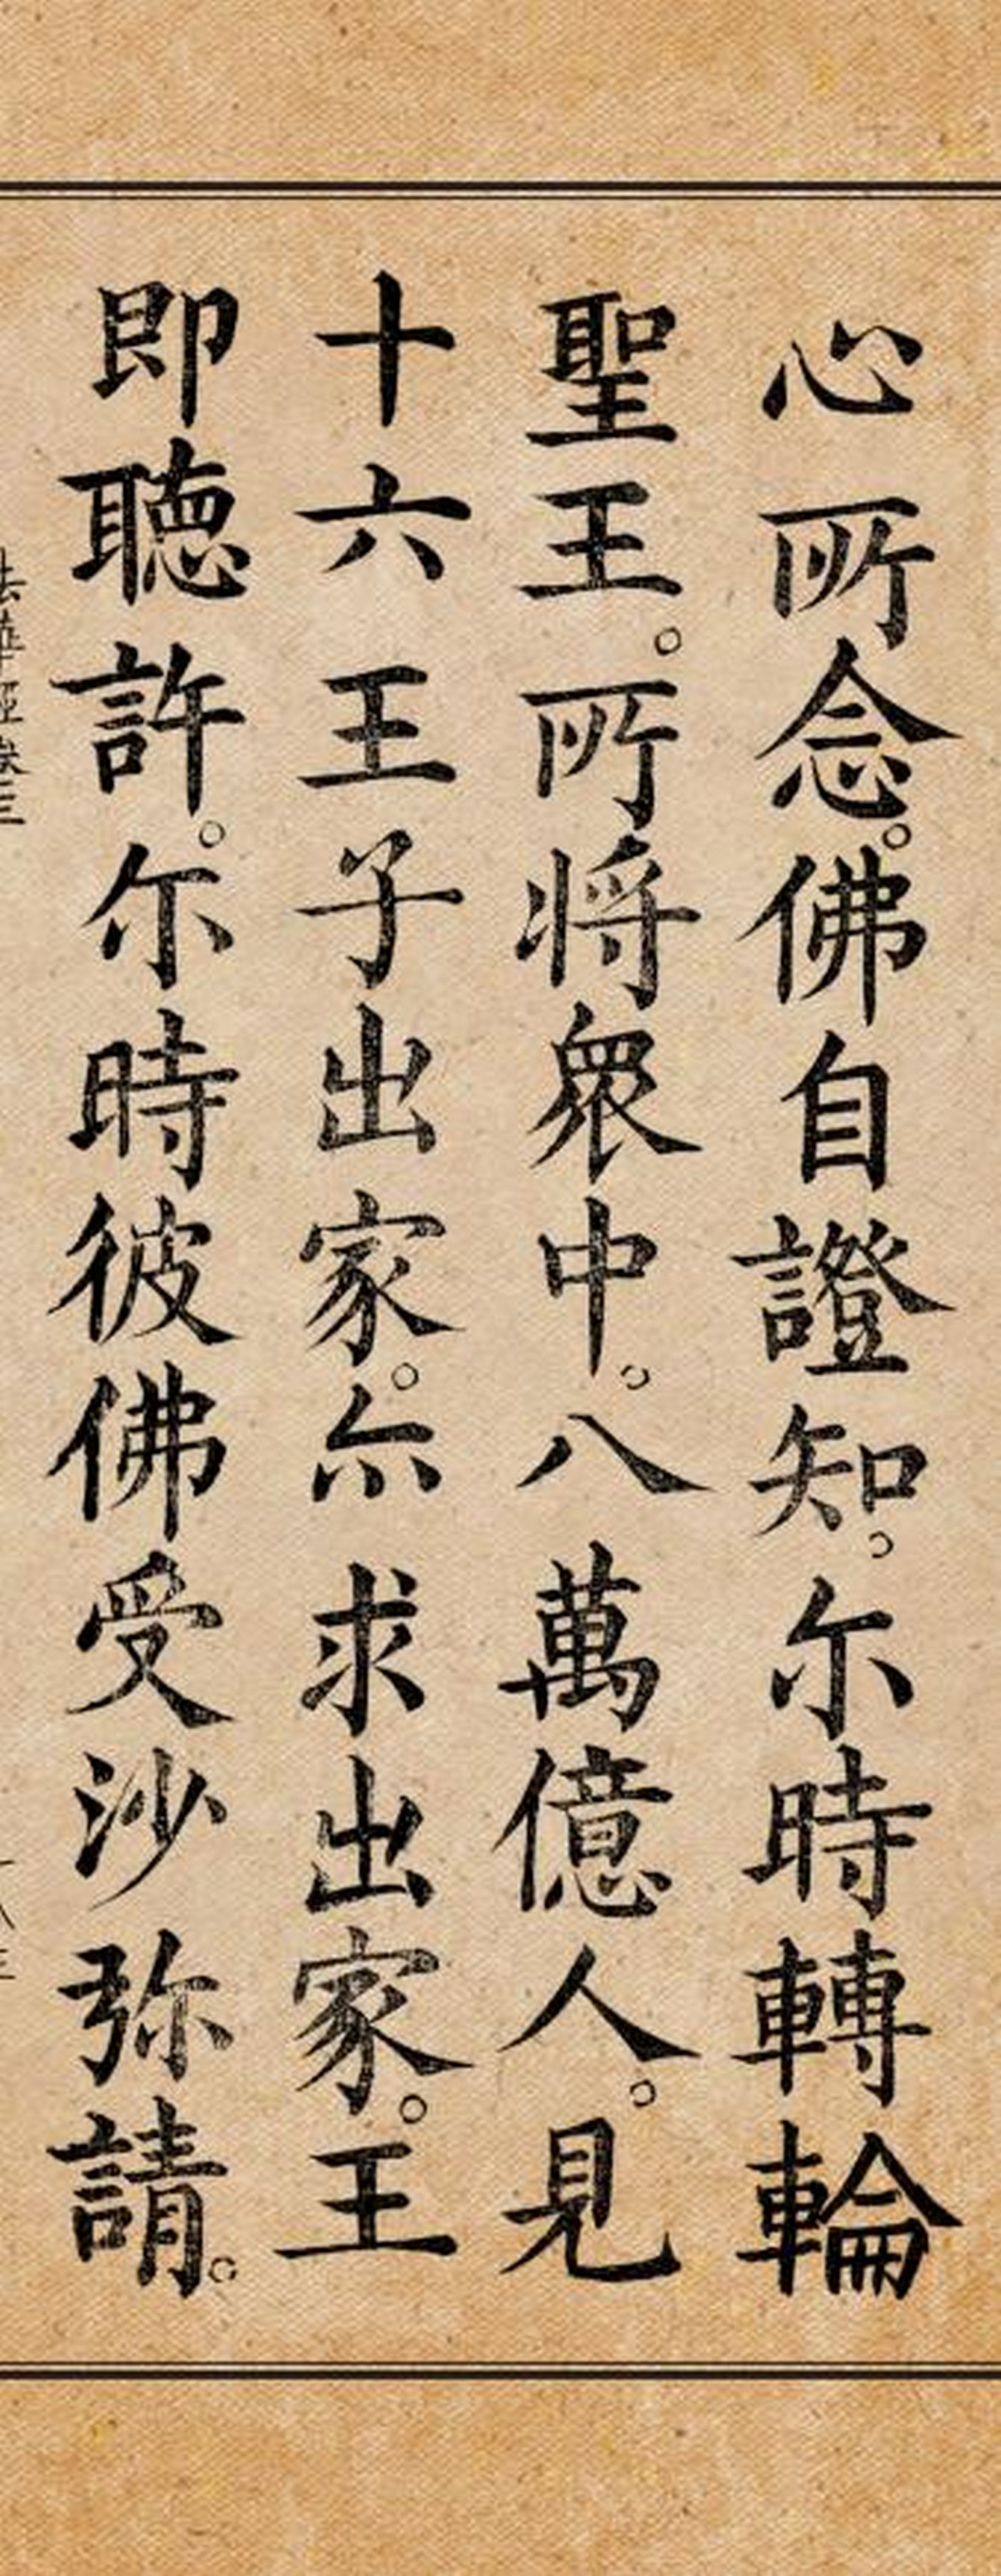 心所念。佛自證知。尒時轉輪
聖王。所將衆中。八萬億人。見
十六王子出家。亦求出家。王
即聽許。尒時彼佛受沙弥請。
法華經卷三